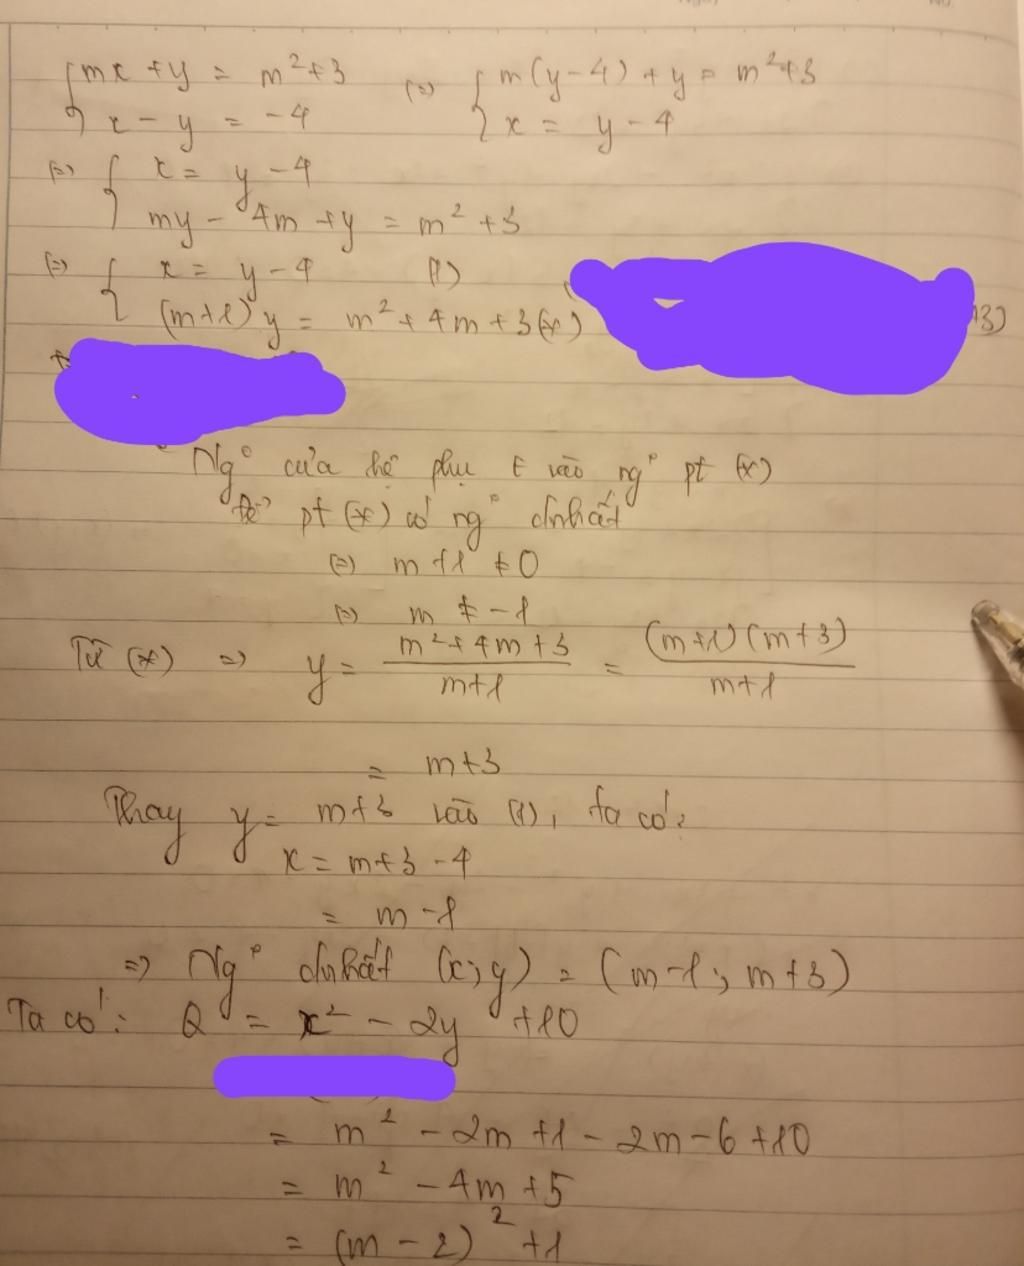 {mx + y = m² + 3 (=) {m(y-4) + y = m² + 3
x - y = -4 x = y - 4
(=) { x = y - 4
my - 4m + y = m² + 3
(=) { x = y - 4 (1)
(m+1)y = m² + 4m + 3 (*) 13)
Ng° của hệ phụ t vào ng° pt (*)
Để pt (*) có ng° d/nhất
(=) m + 1 ≠ 0
(=) m ≠ -1
Từ (*) => y = (m² + 4m + 3)/(m+1) = ((m+1)(m+3))/(m+1)
= m+3
Thay y = m+3 vào (1), ta có:
x = m+3-4
= m-1
=> Ng° d/nhất (x;y) = (m-1; m+3)
Ta có: Q = x² - 2y + 10
= m² - 2m + 1 - 2m - 6 + 10
= m² - 4m + 5
= (m-2)² + 1